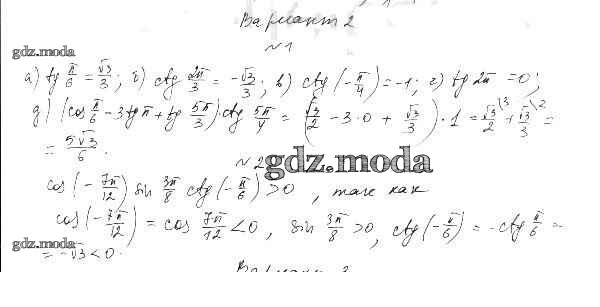 Вариант 2
№1
gdz.moda
а) tg π/6 = √3/3; б) ctg 2π/3 = -√3/3; в) ctg(-π/4) = -1; г) tg 2π = 0;
д) (cos π/6 - 3tg π + tg 5π/3)·ctg 5π/4 = (√3/2 - 3·0 + √3/3)·1 = √3/2 \3 + √3/3 \2 =
= 5√3/6.
№2
gdz.moda
cos(-7π/12) sin 3π/8 ctg(-π/6) > 0, так как
cos(-7π/12) = cos 7π/12 < 0, sin 3π/8 > 0, ctg(-π/6) = -ctg π/6 =
gdz.moda
= -√3 < 0.
Вариант 3